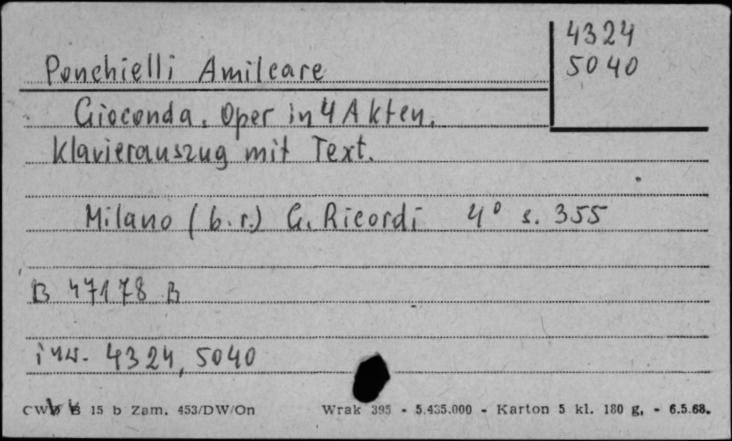 4324
5040
Ponchielli Amilcare
Gioconda. Oper in 4 Akten.
Klavierauszug mit Text.
Milano (b.r.) G. Ricordi 4° s. 355
B 47178 B
inw. 4324, 5040
15 b Zam. 453/DW/On Wrak 395 - 5.435.000 - Karton 5 kl. 180 g, - 6.5.68.